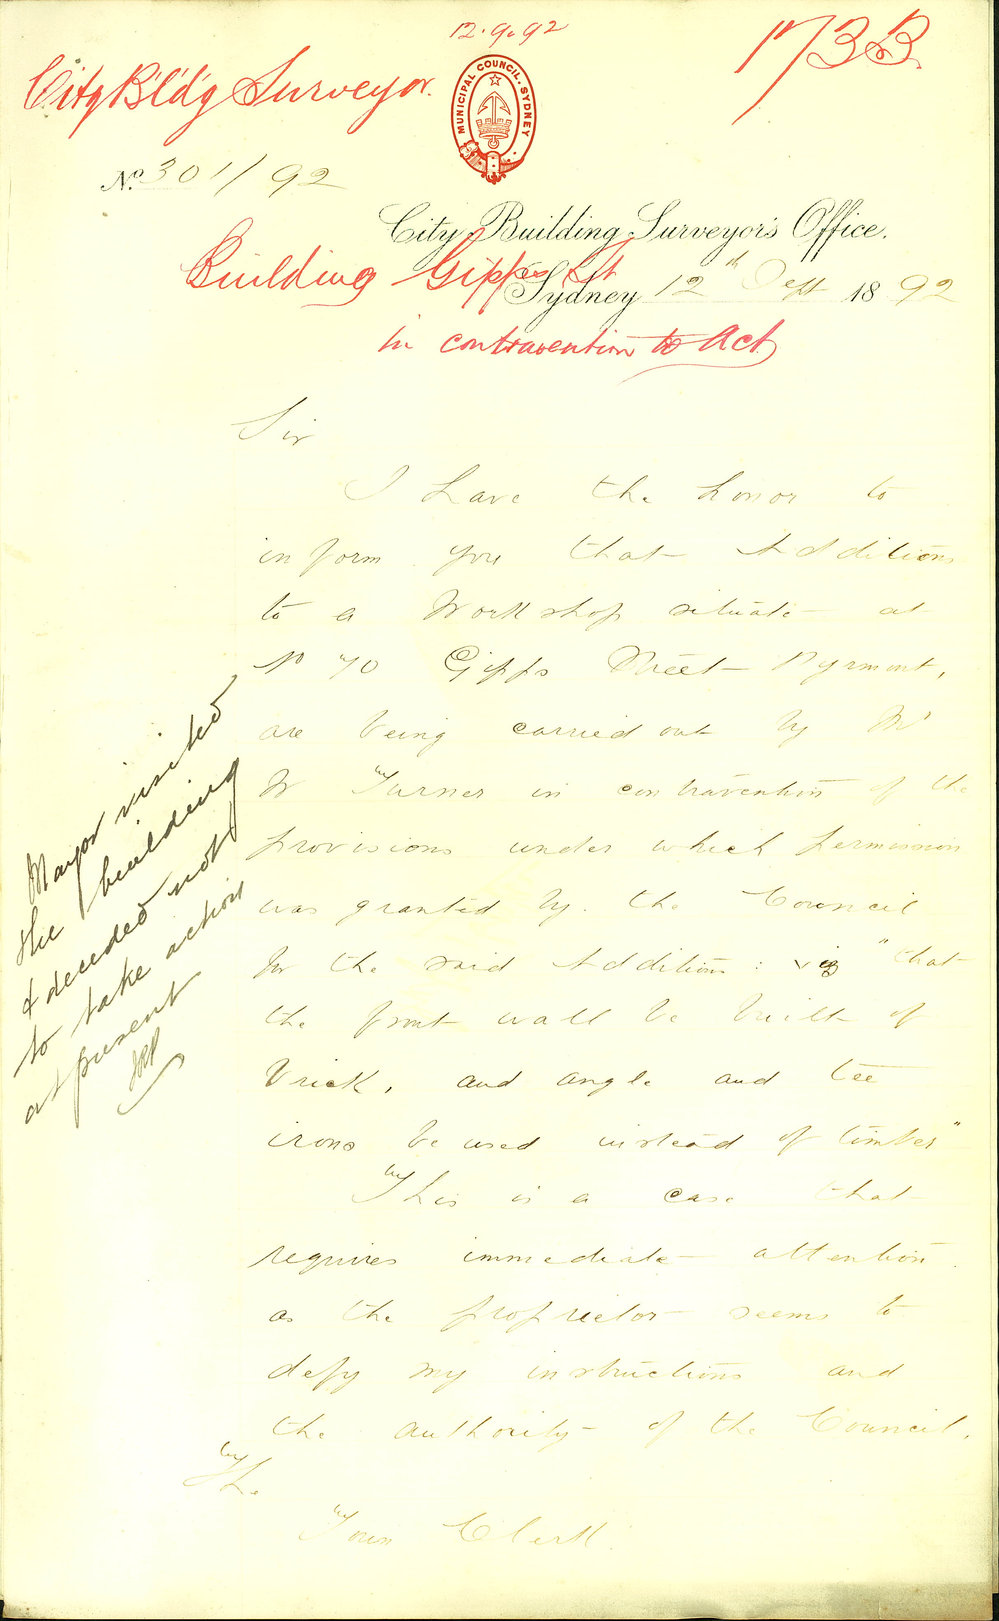 12.9.92
1733
City Bldg Surveyor.
MUNICIPAL COUNCIL. SYDNEY
No. 301/92
City Building Surveyor's Office.
Building Gipps St
Sydney 12th Sept 1892
in contravention to Act
Sir
I have the honor to
inform you that Additions
to a Workshop situate at
No 70 Gipps Street Pyrmont,
are being carried out by Mr
W Turner in contravention of the
provisions under which permission
was granted by the Council
for the said Additions: viz "that
the front wall be built of
brick, and angle and tee
irons be used instead of timber"
This is a case that
requires immediate attention
as the proprietor seems to
defy my instructions and
the authority of the Council.
The
Town Clerk.
Mayor visited
the building
& decided not
to take action
at present